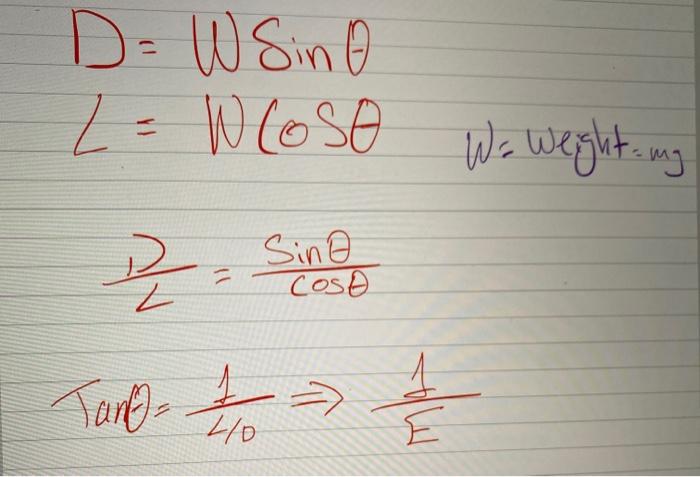 D = W Sin θ
L = W Cos θ
W = Weight = mg
D/L = Sin θ / Cos θ
Tan θ = 1 / L/D ⇒ 1 / E